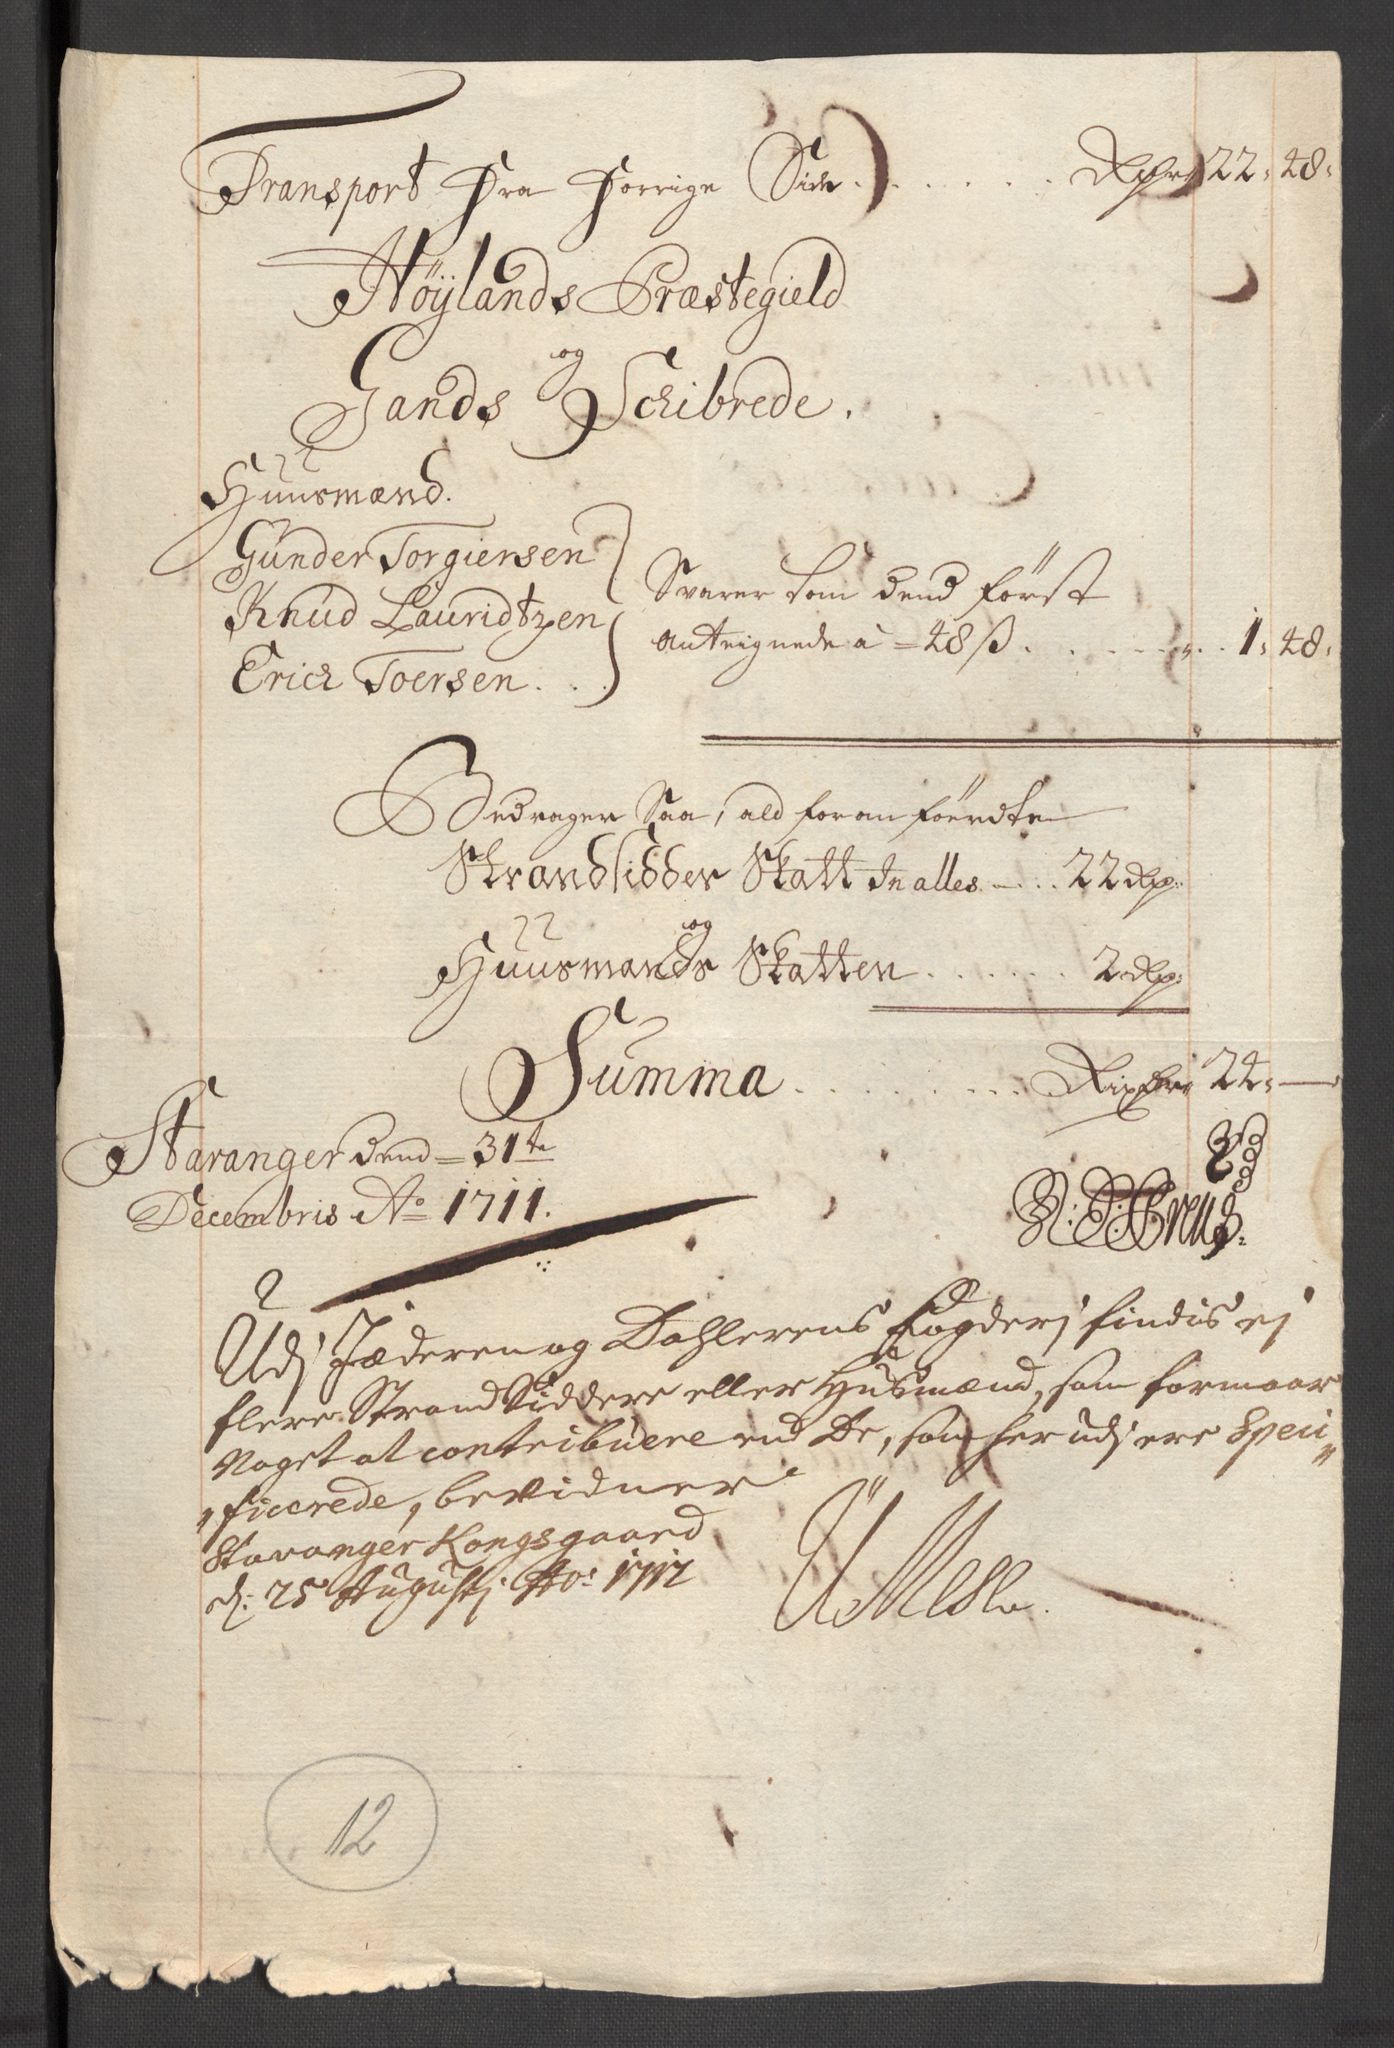 Transport fra forrige Side . . . . . . Rdr 22: 48:
Höÿlands Præstegield
og
Gands Schibrede.
Huusmænd.
Gunder Torgiersen
Knud Lauridtzen
Erich Toersen . . .
Svarer som dend först
anteignede a = 48 ß. . . . . . . 1: 48:
Bedrager Saa, ald foranföerdte
Strandsidder Skatt In alles . . . 22 Rdr:
og
Huusmands Skatten . . . . . . 2 Rdr:
Summa . . . . . . . . . Rixdlr 24: —
Stavanger dend = 31te
Decembris Ao 1711.
Udj Jæderen og Dahlerens fogderj findis ej
flere StrandSiddere eller Husmænd, som formaar
Noget at contribuere end De, som her udj ere Speci„
„ficerede, bevidner
Stavanger Kongsgaard
d: 25 Augustj Ao: 1712
12